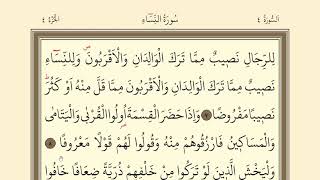 السُّورَةُ ٤ سُورَةُ النِّسَاءِ الْجُزْءُ ٤
لِلرِّجَالِ نَصِيبٌ مِمَّا تَرَكَ الْوَالِدَانِ وَالْأَقْرَبُونَ وَلِلنِّسَاءِ
نَصِيبٌ مِمَّا تَرَكَ الْوَالِدَانِ وَالْأَقْرَبُونَ مِمَّا قَلَّ مِنْهُ أَوْ كَثُرَ
نَصِيبًا مَفْرُوضًا ٧ وَإِذَا حَضَرَ الْقِسْمَةَ أُولُوا الْقُرْبَى وَالْيَتَامَى
وَالْمَسَاكِينُ فَارْزُقُوهُمْ مِنْهُ وَقُولُوا لَهُمْ قَوْلًا مَعْرُوفًا ٨
وَلْيَخْشَ الَّذِينَ لَوْ تَرَكُوا مِنْ خَلْفِهِمْ ذُرِّيَّةً ضِعَافًا خَافُوا